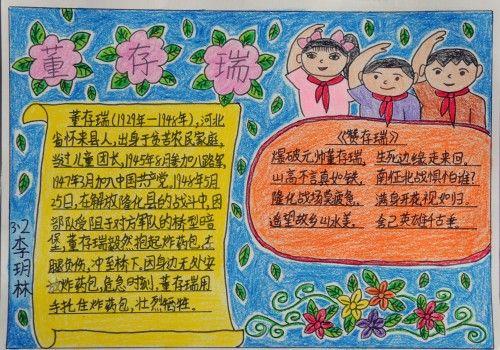 董存瑞
董存瑞(1929年—1948年),河北
省怀来县人,出身于贫苦农民家庭,
当过儿童团长,1945年8月参加八路军,
1947年3月加入中国共产党,1948年5月
25日,在解放隆化县的战斗中,因
部队受阻于对方军队的桥型暗
堡,董存瑞毅然抱起炸药包,左
腿负伤,冲至桥下,因身边无处安
放炸药包,危急时刻,董存瑞用
手托住炸药包,壮烈牺牲。
《赞存瑞》
爆破元帅董存瑞,生死边缘走来回,
山高不言真如铁,南征北战惧怕谁?
隆化战场莫疲惫,满身开花视如归,
遥望故乡山水美,英雄千古垂。
3·2李玥林